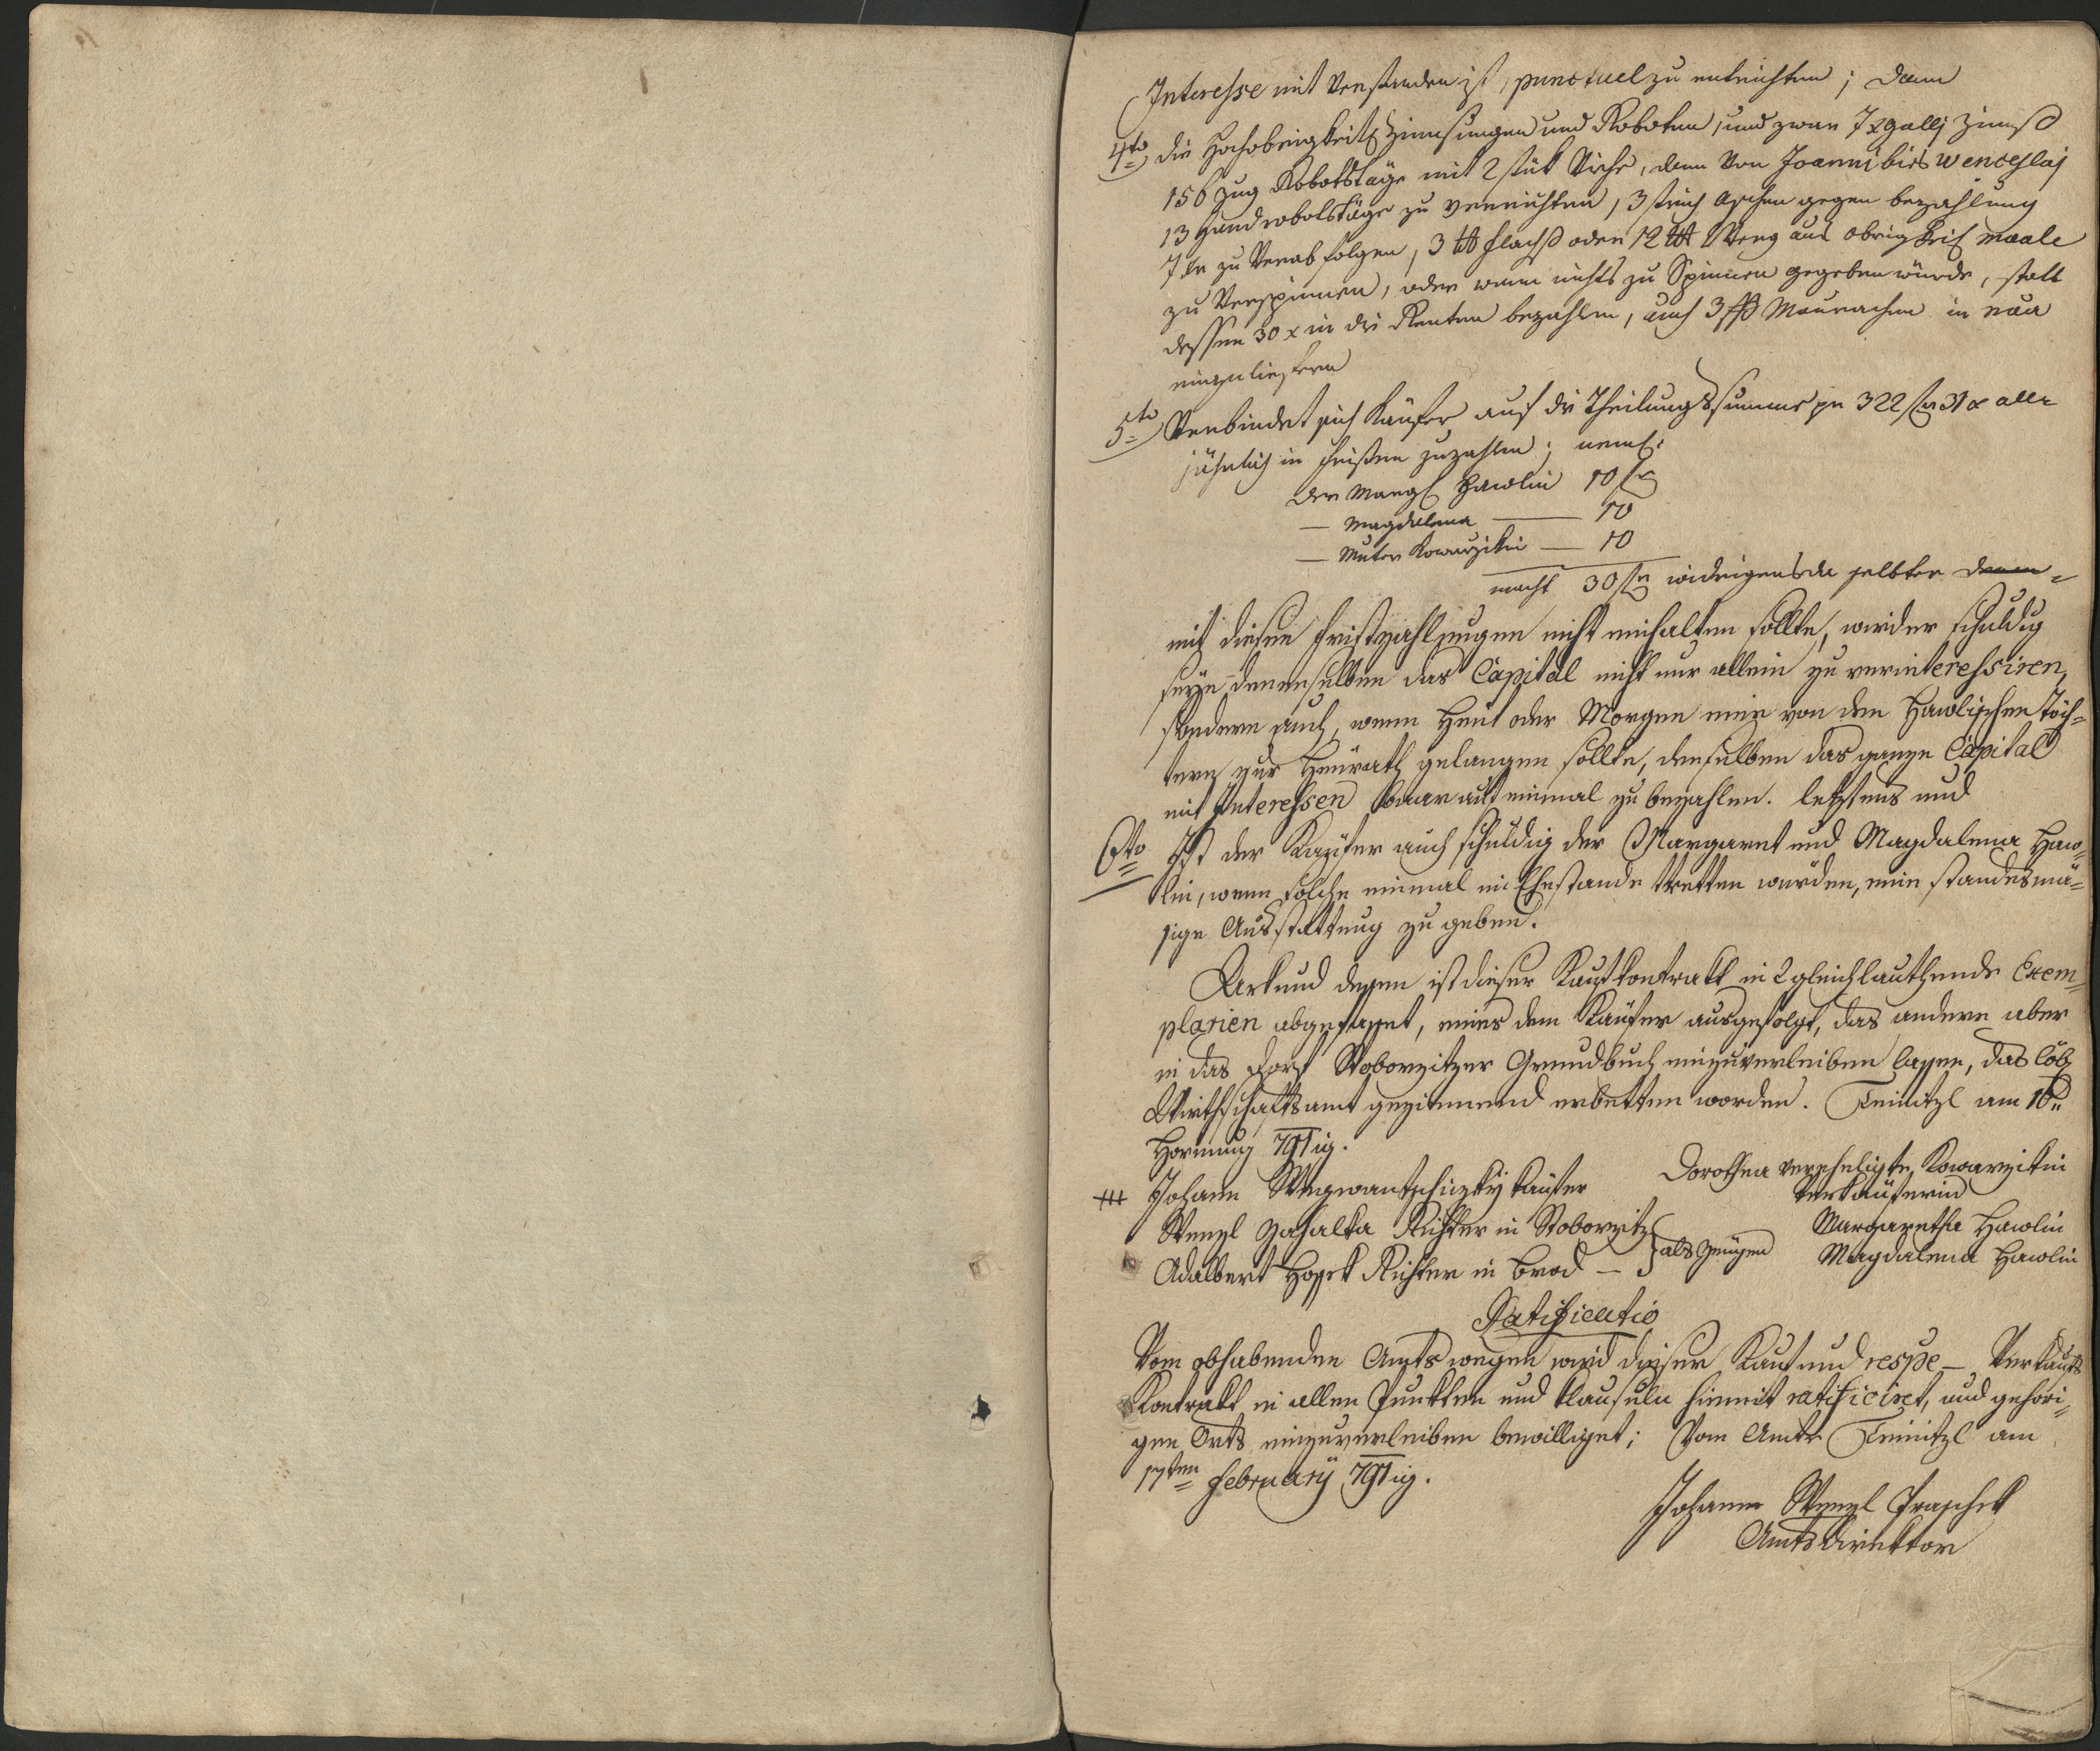 Interesse mit Verstanden ist, punctuel zu entrichten; dann
4to die Hochobrigkeitl: Zinnsungen und Roboten, und zwar Galli Zinnß
156 Zug Robotstäge mit 2 stük Viehe, dann Von Joanni bis Wenceslaj
13 Handrobotstäge zu verrichten, 3 strich Aschen gegen bezahlung
7 xr zu Verabfolgen, 3 ℔ Flachß oder 12 ℔ Werg aus obrigkeitl: maale
zu Verspinnen, oder wann nichts zu Spinnen gegeben würde, statt
dessen 30 x in die Renten bezahlen, auch 3 ß Maurachen in
einzuliefern
5to Verbindet sich Käufer auf die Theilungssumme pr 322 f 31 x alle
jährlich in Frißten zuzahlen; neml:
der Marg: Hawlin 10 f
— Magdalena — 10
— Muter Kowarzikin — 10
macht 30 f widrigens da selbter
mit diesen Fristzahlungen nicht einhalten sollte, wird er schuldig
seÿn denenselben das Capital nicht nur allein zu verinteressiren,
sondern auch, wenn Heut oder Morgen eine von den Hawlischen Töch=
tern zur Heurath gelangen sollte, denselben das ganze Capital
mit Interessen baar auf einmal zu bezahlen. letztens und
6to Ist der Kaüfer auch schuldig der Margaret und Magdalena Haw=
lin, wenn solche einmal in Ehestande tretten würden, eine standesmä=
sige Ausstattung zu geben.
Urkund dessen ist dieser Kaufkontrakt in 2 gleichlauthende Exem=
plarien abgefasset, eines dem Käufer ausgefolgt, das andere aber
in das Dorf Stoborzitzer Grundbuch einzuverleiben lassen, das löb:
Wirthschaftsamt geziemend erbetten worden. Teinitzl am 16:
Hornung 791ig.
+++ Johann Käufer
Dorothea verehligte Kowarzikin
Verkäuferin
Wenzl Zahalka Richter in Stoborzitz
Margaretha Hawlin
Adalbert Hossek Richter in Brod — } als Zeugen
Magdalena Hawlin
Ratificatio
Vom obhabenden Amts wegen wird dieser Kauf und respe— Verkaufs
Kontrakt in allen Punkten und Klausuln hiemit ratificiret, und gehöri=
gen Orts einzuverleiben bewilliget; Vom Amte Teinitzl am
17ten Februarÿ 791ig.
Johann Wenzl Praschek
Amtsdirektor